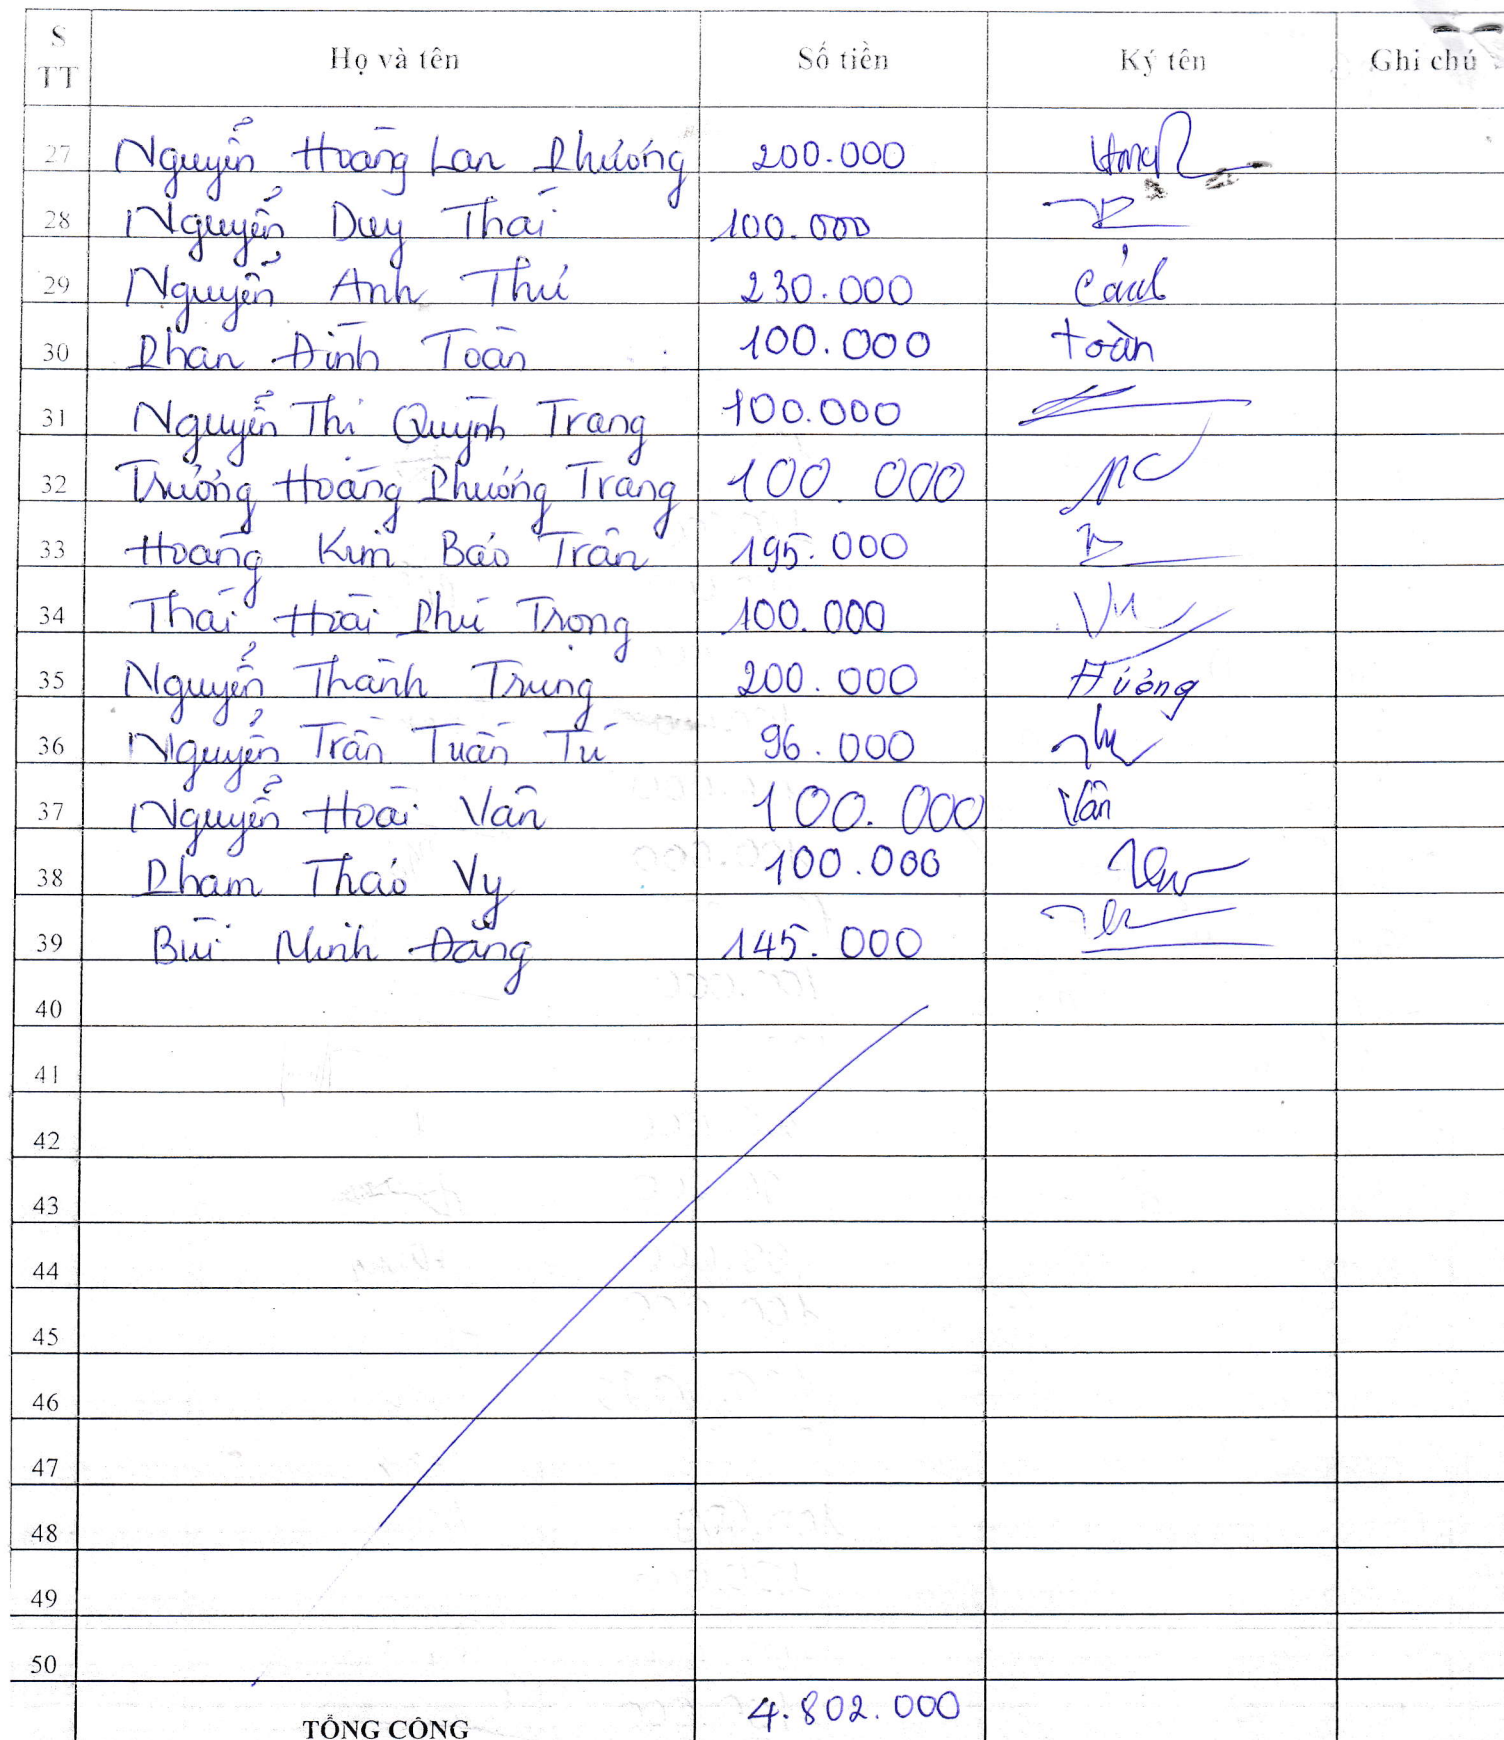 S TT Họ và tên Số tiền Ký tên Ghi chú
27 Nguyễn Hoàng Lan Phương 200.000
28 Nguyễn Duy Thái 100.000
29 Nguyễn Anh Thư 230.000
30 Phan Đình Toàn 100.000 toàn
31 Nguyễn Thị Quỳnh Trang 100.000
32 Trương Hoàng Phương Trang 100.000
33 Hoàng Kim Bảo Trân 195.000
34 Thái Hoài Phú Trọng 100.000
35 Nguyễn Thành Trung 200.000 Hương
36 Nguyễn Trần Tuấn Tú 96.000
37 Nguyễn Hoài Vân 100.000 Vân
38 Phạm Thảo Vy 100.000
39 Bùi Minh Đăng 145.000
40
41
42
43
44
45
46
47
48
49
50
TỔNG CỘNG 4.802.000